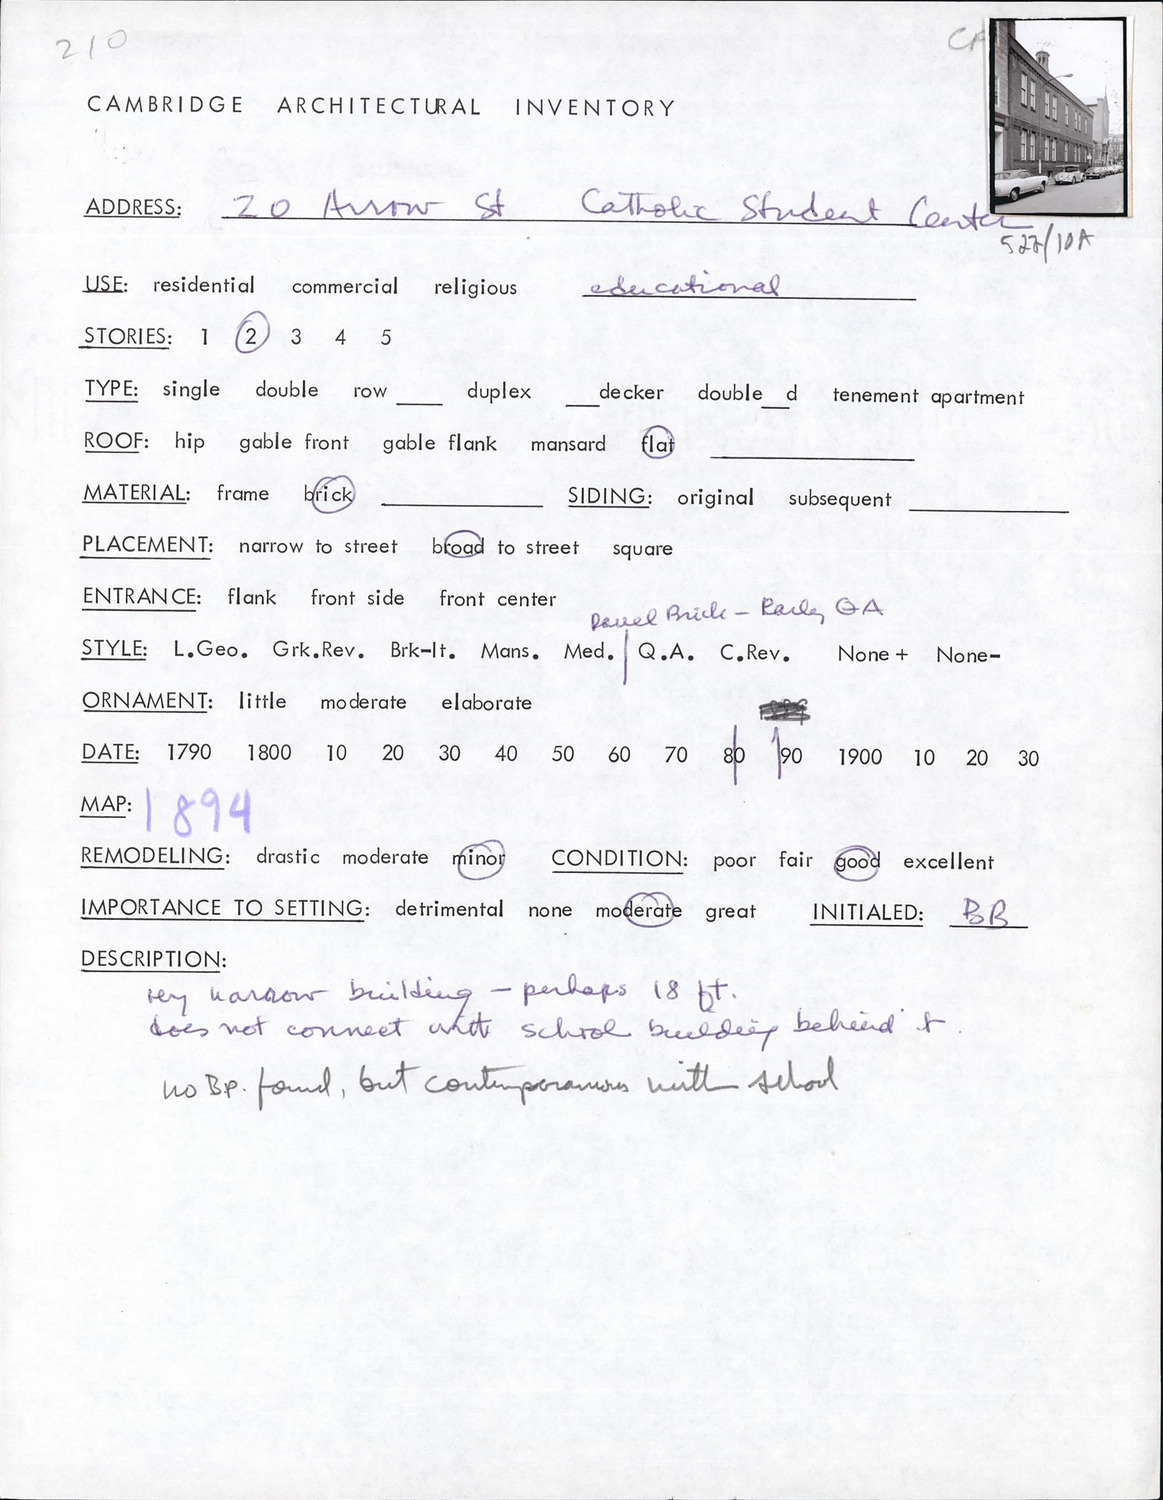 210
CAMBRIDGE ARCHITECTURAL INVENTORY
ADDRESS: 20 Arrow St Catholic Student Center
522/10A
USE: residential commercial religious educational
STORIES: 1 2 3 4 5
TYPE: single double row ___ duplex ___decker double__d tenement apartment
ROOF: hip gable front gable flank mansard flat
MATERIAL: frame brick SIDING: original subsequent
PLACEMENT: narrow to street broad to street square
ENTRANCE: flank front side front center
Panel Brick - Early QA
STYLE: L.Geo. Grk.Rev. Brk-It. Mans. Med. Q.A. C.Rev. None+ None-
ORNAMENT: little moderate elaborate
DATE: 1790 1800 10 20 30 40 50 60 70 80 90 1900 10 20 30
MAP: 1894
REMODELING: drastic moderate minor CONDITION: poor fair good excellent
IMPORTANCE TO SETTING: detrimental none moderate great INITIALED: BB
DESCRIPTION:
very narrow building - perhaps 18 ft.
does not connect with school building behind it.
no BP. found, but contemporaneous with school